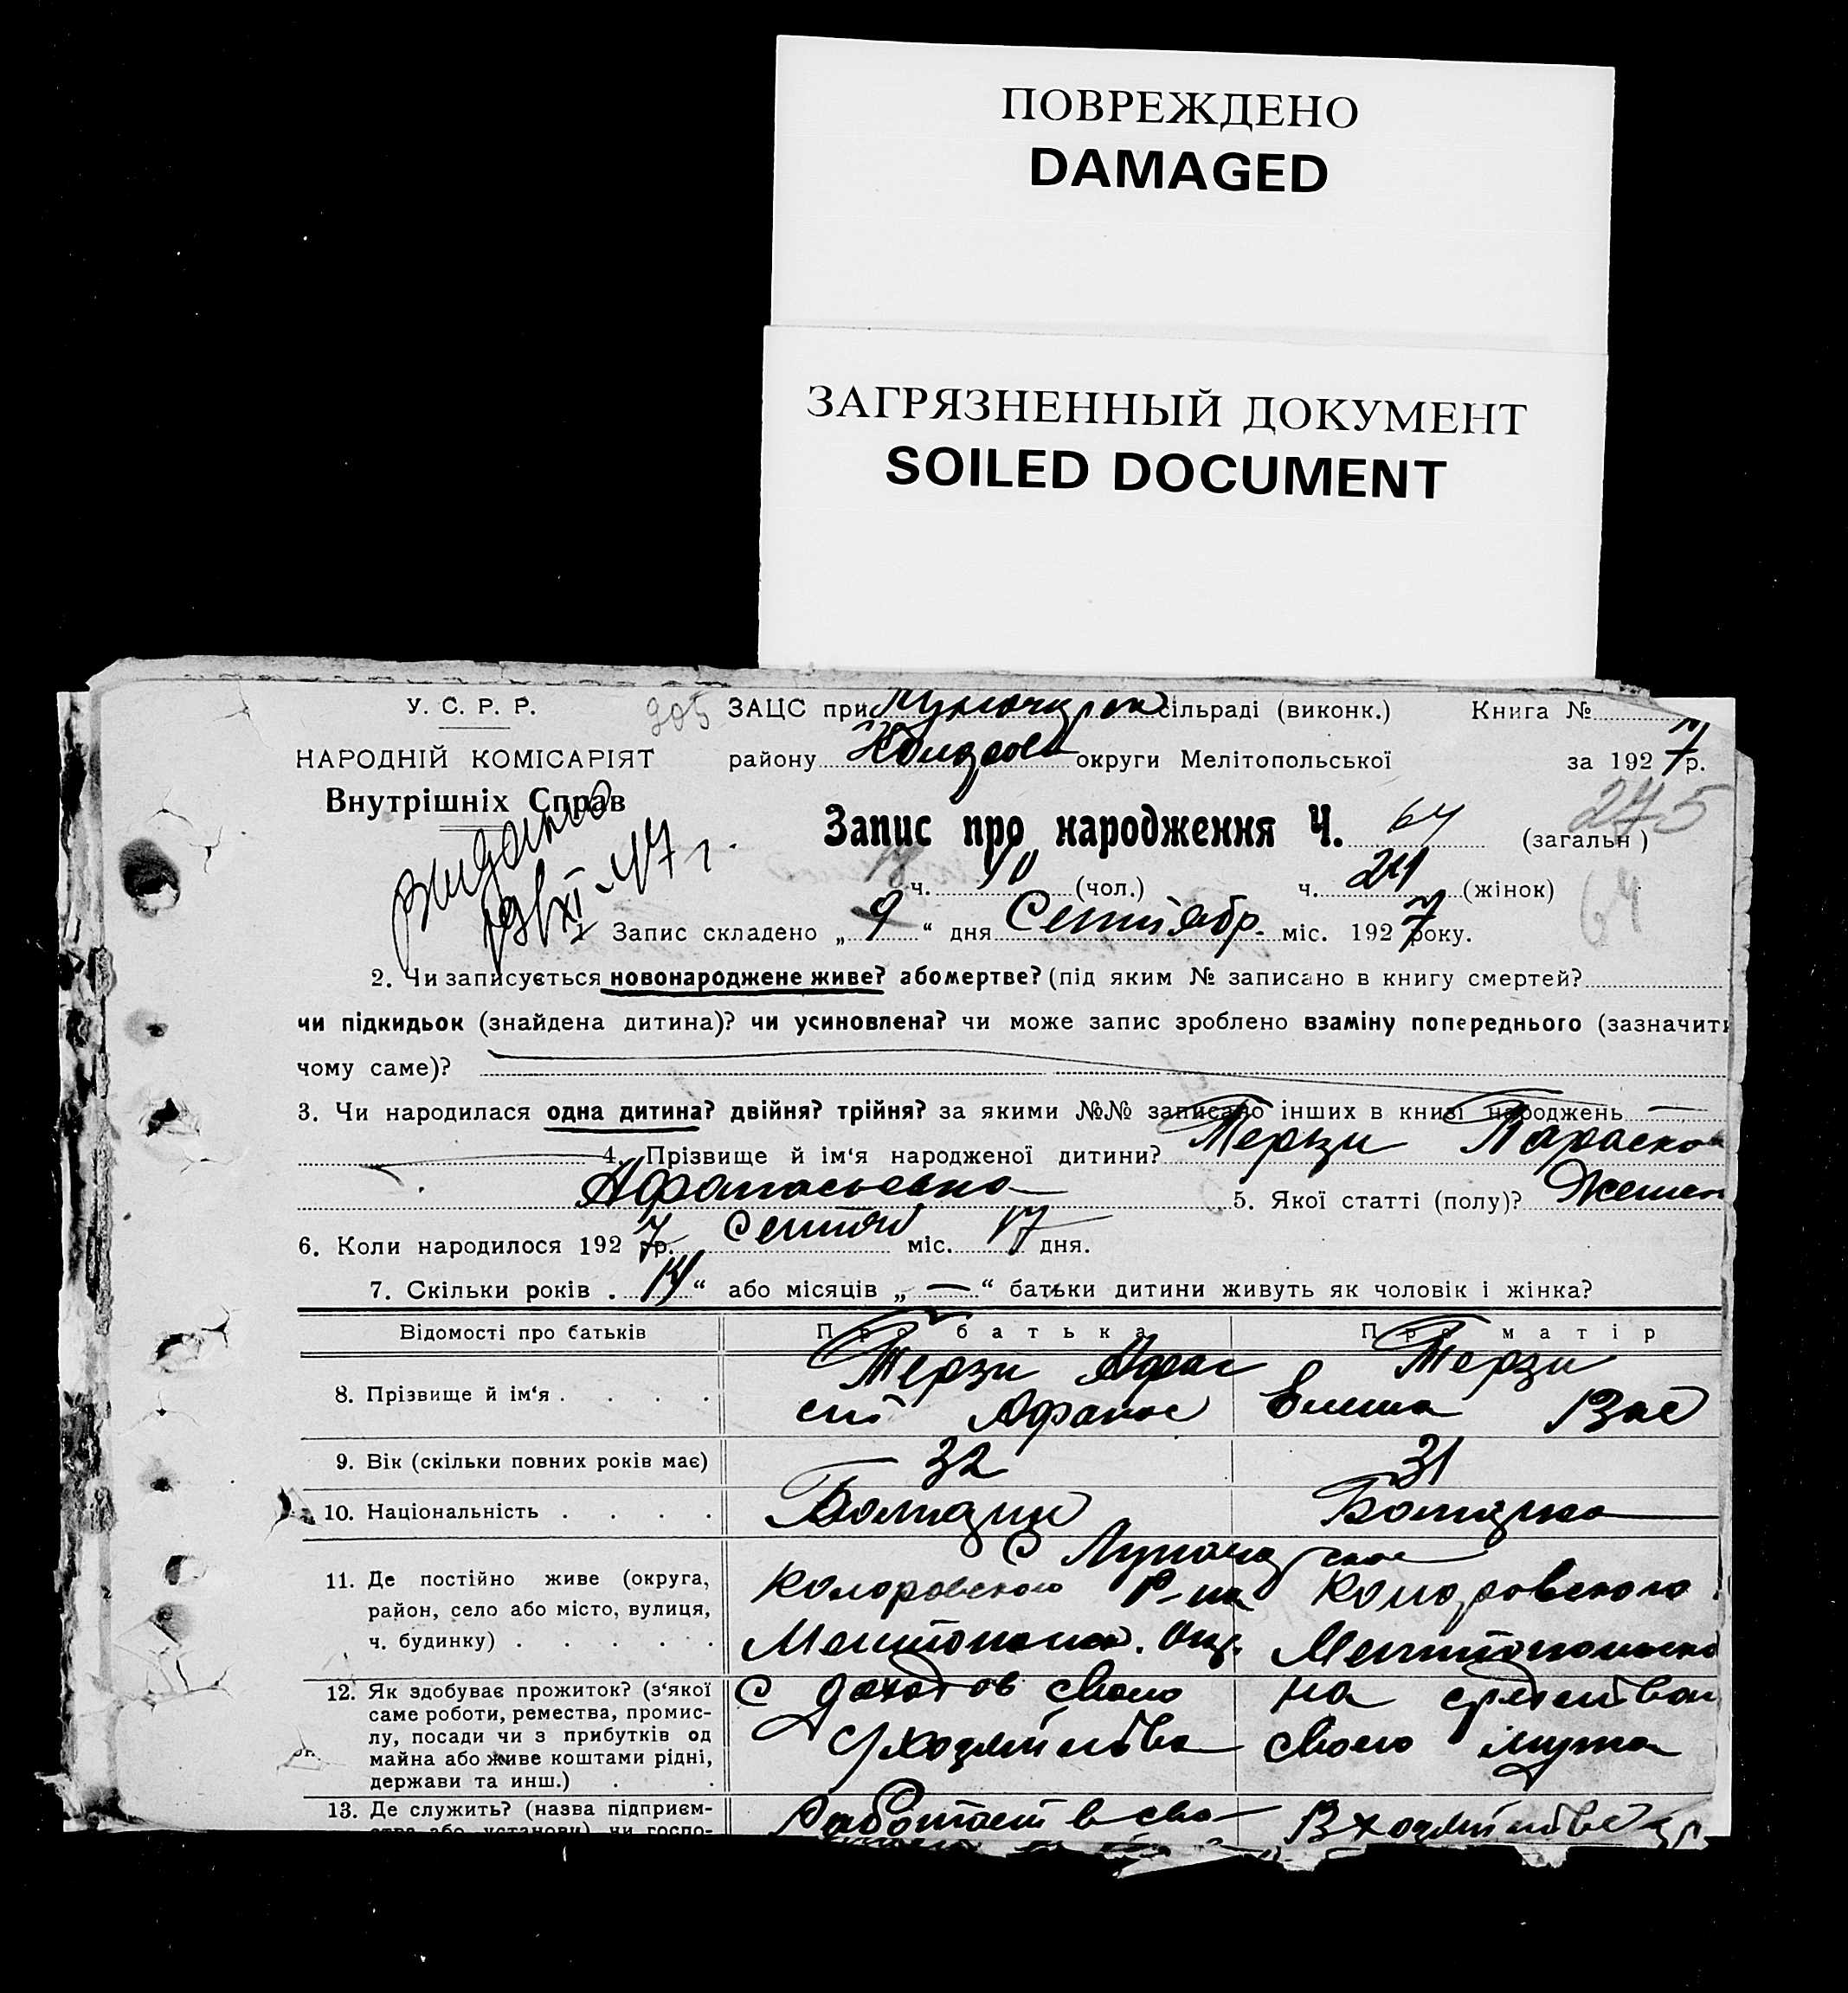 ПОВРЕЖДЕНО
DAMAGED
ЗАГРЯЗНЕННЫЙ ДОКУМЕНТ
SOILED DOCUMENT
У. С. Р. Р. 905 ЗАЦС при сільраді (виконк.) Книга №
НАРОДНІЙ КОМІСАРІЯТ району округи Мелітопольської за 1927 р.
Внутрішніх Справ
275
Запис про народження Ч. 64 (загальн)
ч. (чол.) ч. 24 (жінок)
64
1. Запис складено „ 9 “ дня Сентябр. міс. 1927 року.
2. Чи записується новонароджене живе? або мертве? (під яким № записано в книгу смертей?
чи підкидьок (знайдена дитина)? чи усиновлена? чи може запис зроблено взаміну попереднього (зазначити
чому саме)?
3. Чи народилася одна дитина? двійня? трійня? за якими №№ записано інших в книзі народжень —
4. Прізвище й ім‘я народженої дитини? Терзи Параскова
Афанасьевна 5. Якої статті (полу)? Женск
6. Коли народилося 1927 р. Сентяб міс. 17 дня.
7. Скільки років „ 14 “ або місяців „ — “ батьки дитини живуть як чоловік і жінка?
Відомості про батьків Про батька Про матір
8. Прізвище й ім‘я . . . . Терзи Афана Терзи
сий Афанас Елена Вас
9. Вік (скільки повних років має) 32 31
10. Національність . . . . Болгарин Болгарка
11. Де постійно живе (округа, район, село або місто, вулиця, ч. будинку) . . . . .
Коларовского Р-на Коларовского
Мелитопольск. Окр. Мелитопольско
12. Як здобуває прожиток? (з‘якої саме роботи, ремества, промислу, посади чи з прибутків од майна або живе коштами рідні, держави та инш.) . .
С доходов своего на средства
хозяйства своего мужа
13. Де служить? (назва підприєм- Работает в сво В хозяйстве
ства або установи) чи госпо-